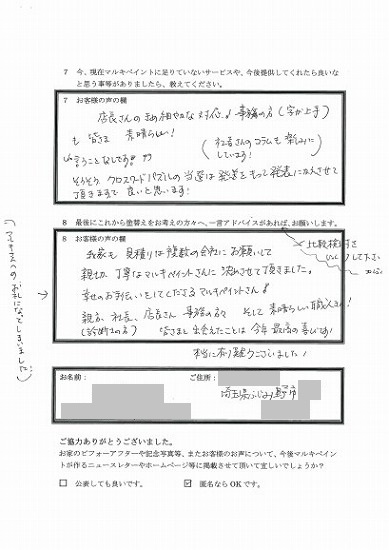 7 今、現在マルキペイントに足りていないサービスや、今後提供してくれたら良いな
と思う事等がありましたら、教えてください。
7 お客様の声の欄
店長さんのきめ細やかな対応♪事務の方(字が上手)
も 皆さま 素晴らしい!
言うことなしです!!
(社長さんのコラムも楽しみにしています!)
そうそう、クロスワードパズルの当選は発送をもって発表にかえさせて
頂きますで良いと思います!
8 最後にこれから塗替えをお考えの方々へ、一言アドバイスがあれば、お願いします。
8 お客様の声の欄
比較検討を
して下さい
我家も 見積りは複数の会社にお願いして
親切、丁寧なマルキペイントさんに決めさせて頂きました。
幸せのお手伝いをしてくださるマルキペイントさん♪
親方、社長、店長さん 事務の方々 そして素晴らしい職人さん!
(診断士の方) 皆さまと出会えたことは今年最高の喜びです!
本当に有り難うございました!
(マルキさんへのお礼になってしまいました)
お名前:
ご住所:
埼玉県ふじみ野市
ご協力ありがとうございました。
お家のビフォーアフターや記念写真等、またお客様のお声について、今後マルキペイン
トが作るニュースレターやホームページ等に掲載させて頂いて宜しいでしょうか?
☐ 公表しても良いです。 ☑ 匿名ならOKです。